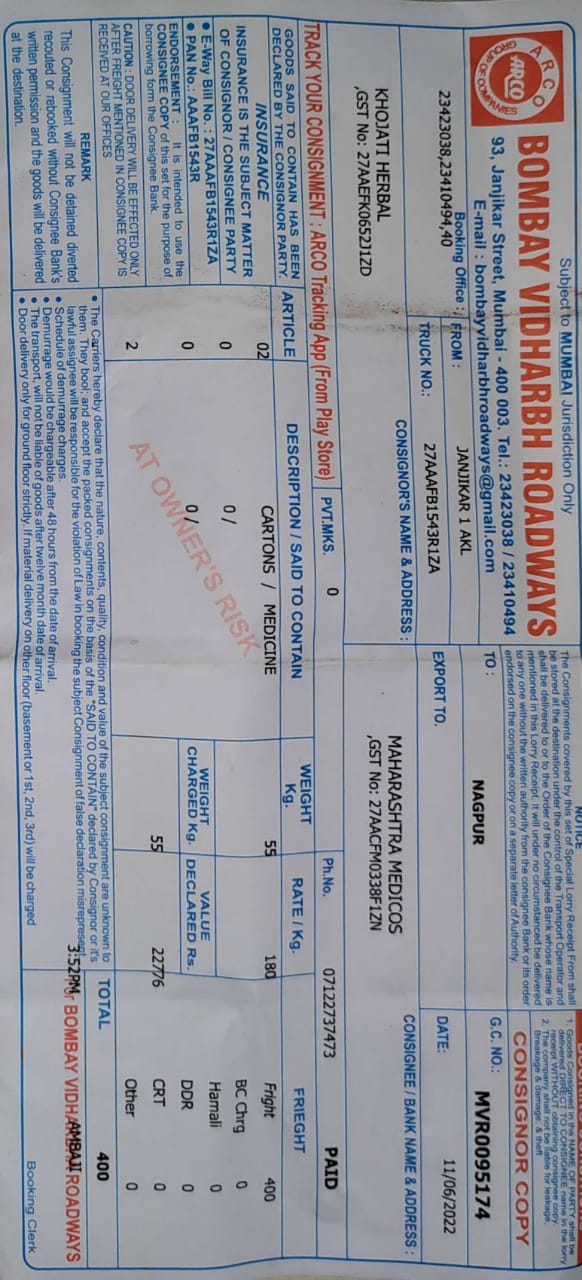 Subject to MUMBAI Jurisdiction Only
ARCO
ARCO
GROUP OF COMPANIES
BOMBAY VIDHARBH ROADWAYS
93, Janjikar Street, Mumbai - 400 003. Tel.: 23423038 / 23410494
E-mail : bombayvidharbhroadways@gmail.com
NOTICE
The Consignments covered by this set of Special Lorry Receipt From shall
be stored at the destination under the control of the Transport Operator and
shall be delivered to or to the Order of the Consignee Bank whose name is
mentioned in this Lorry Receipt. It will under no circumstanced be delivered
to any one without the written authority from the consignee Bank or its order
endorsed on the consignee copy or on a separate letter of Authority.
1. Goods Consigned in the NAME OF PARTY shall be
delivered DIRECT TO CONSIGNEE name in the lorry
receipt WITHOUT obtaining consignee copy.
2. The company shall not be liable for leakage,
Breakage & damage. & theft
CONSIGNOR COPY
G.C. NO.: MVR0095174
Booking Office :
23423038,23410494,40
FROM : JANJIKAR 1 AKL
TO : NAGPUR
DATE: 11/06/2022
TRUCK NO.: 27AAAFB1543R1ZA
EXPORT TO.
CONSIGNOR'S NAME & ADDRESS :
KHOJATI HERBAL
,GST No: 27AAEFK0652J1ZD
CONSIGNEE / BANK NAME & ADDRESS :
MAHARASHTRA MEDICOS
,GST No: 27AACFM0338F1ZN
TRACK YOUR CONSIGNMENT : ARCO Tracking App (From Play Store)
PVT.MKS. 0
Ph.No. 07122737473
PAID
GOODS SAID TO CONTAIN HAS BEEN
DECLARED BY THE CONSIGNOR PARTY.
INSURANCE
INSURANCE IS THE SUBJECT MATTER
OF CONSIGNOR / CONSIGNEE PARTY
• E-Way Bill No. : 27AAAFB1543R1ZA
• PAN No.: AAAFB1543R
ENDORSEMENT : It is intended to use the
CONSIGNEE COPY of this set for the purpose of
borrowing form the Consignee Bank.
CAUTION : DOOR DELIVERY WILL BE EFFECTED ONLY
AFTER FREIGHT MENTIONED IN CONSIGNEE COPY IS
RECEIVED AT OUR OFFICES
ARTICLE DESCRIPTION / SAID TO CONTAIN WEIGHT Kg. RATE / Kg. FRIEGHT
02 CARTONS / MEDICINE 55 180 Fright 400
0 0 / BC Chrg 0
Hamali 0
WEIGHT CHARGED Kg. VALUE DECLARED Rs.
0 0 / DDR 0
55 22776 CRT 0
2 Other 0
AT OWNER'S RISK
TOTAL 400
REMARK
This Consignment will not be detained diverted
recouted or rebooked without Consignee Bank's
written permission and the goods will be delivered
at the destination.
• The Carriers hereby declare that the nature, contents, quality, condition and value of the subject consignment are unknown to
them. They book and accept the packed consignments on the basis of the "SAID TO CONTAIN" declared by Consignor or it's
lawful assignee will be responsible for the violation of Law in booking the subject Consignment of false declaration misrepresent
• Schedule of demurrage charges.
• Demurrage would be chargeable after 48 hours from the date of arrival.
• The transport, will not be liable of goods after twelve month date of arrival.
• Door delivery only for ground floor strictly. If material delivery on other floor (basement or 1st, 2nd, 3rd) will be charged
3:52PM AMBAJI
For BOMBAY VIDHARBH ROADWAYS
Booking Clerk